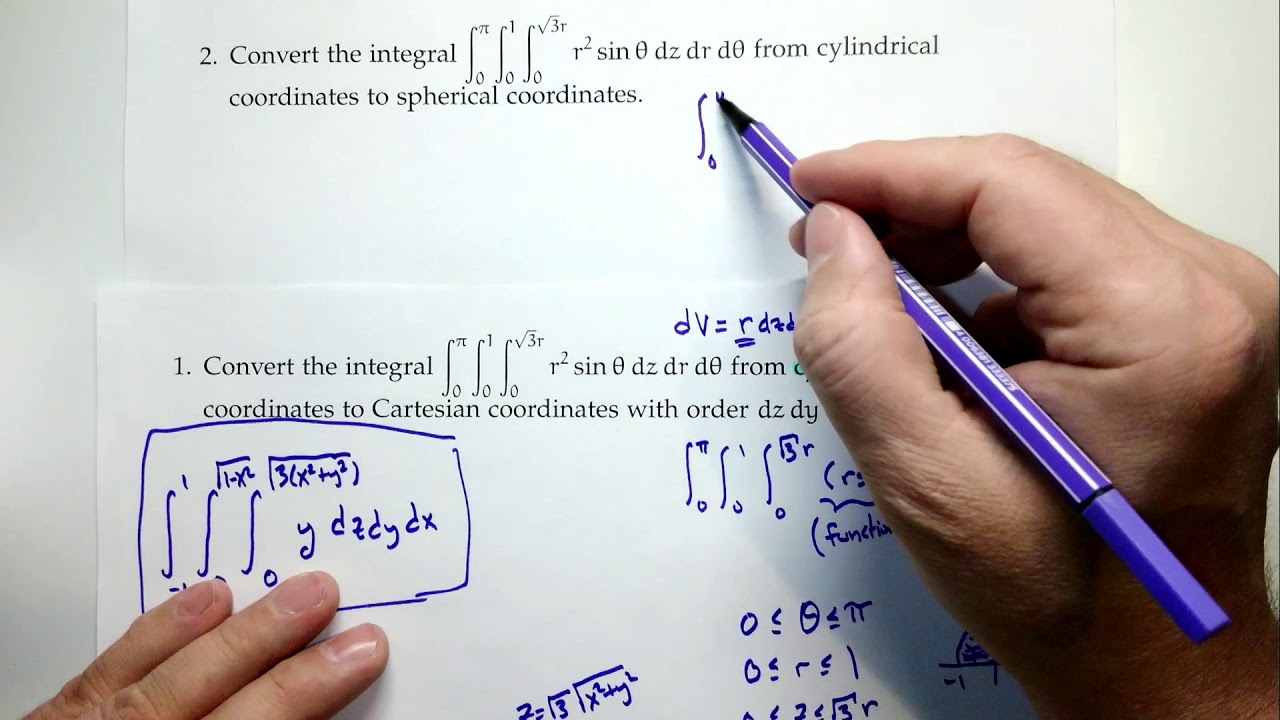 2. Convert the integral ∫₀^π ∫₀^1 ∫₀^√3r r² sin θ dz dr dθ from cylindrical
coordinates to spherical coordinates.
∫₀
dV = r dz
1. Convert the integral ∫₀^π ∫₀^1 ∫₀^√3r r² sin θ dz dr dθ from
coordinates to Cartesian coordinates with order dz dy
∫₀^π ∫₀^1 ∫₀^√3 r (rs
(function
∫^1 ∫^√1-x² ∫₀^√3(x²+y²) y dz dy dx
0 ≤ θ ≤ π
0 ≤ r ≤ 1
-1 1
z = √3 √x²+y²
≤ z ≤ √3 r